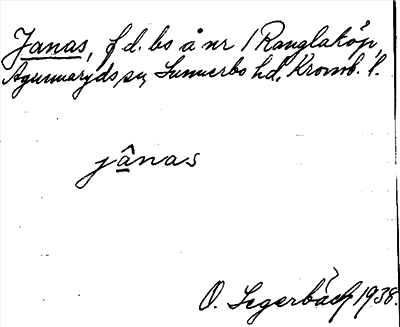 Janas, f d. bs å nr 1 Ranglaköp,
Agunnaryds sn, Sunnerbo hd, Kronob. l.
jânas
O. Segerbäck 1938.